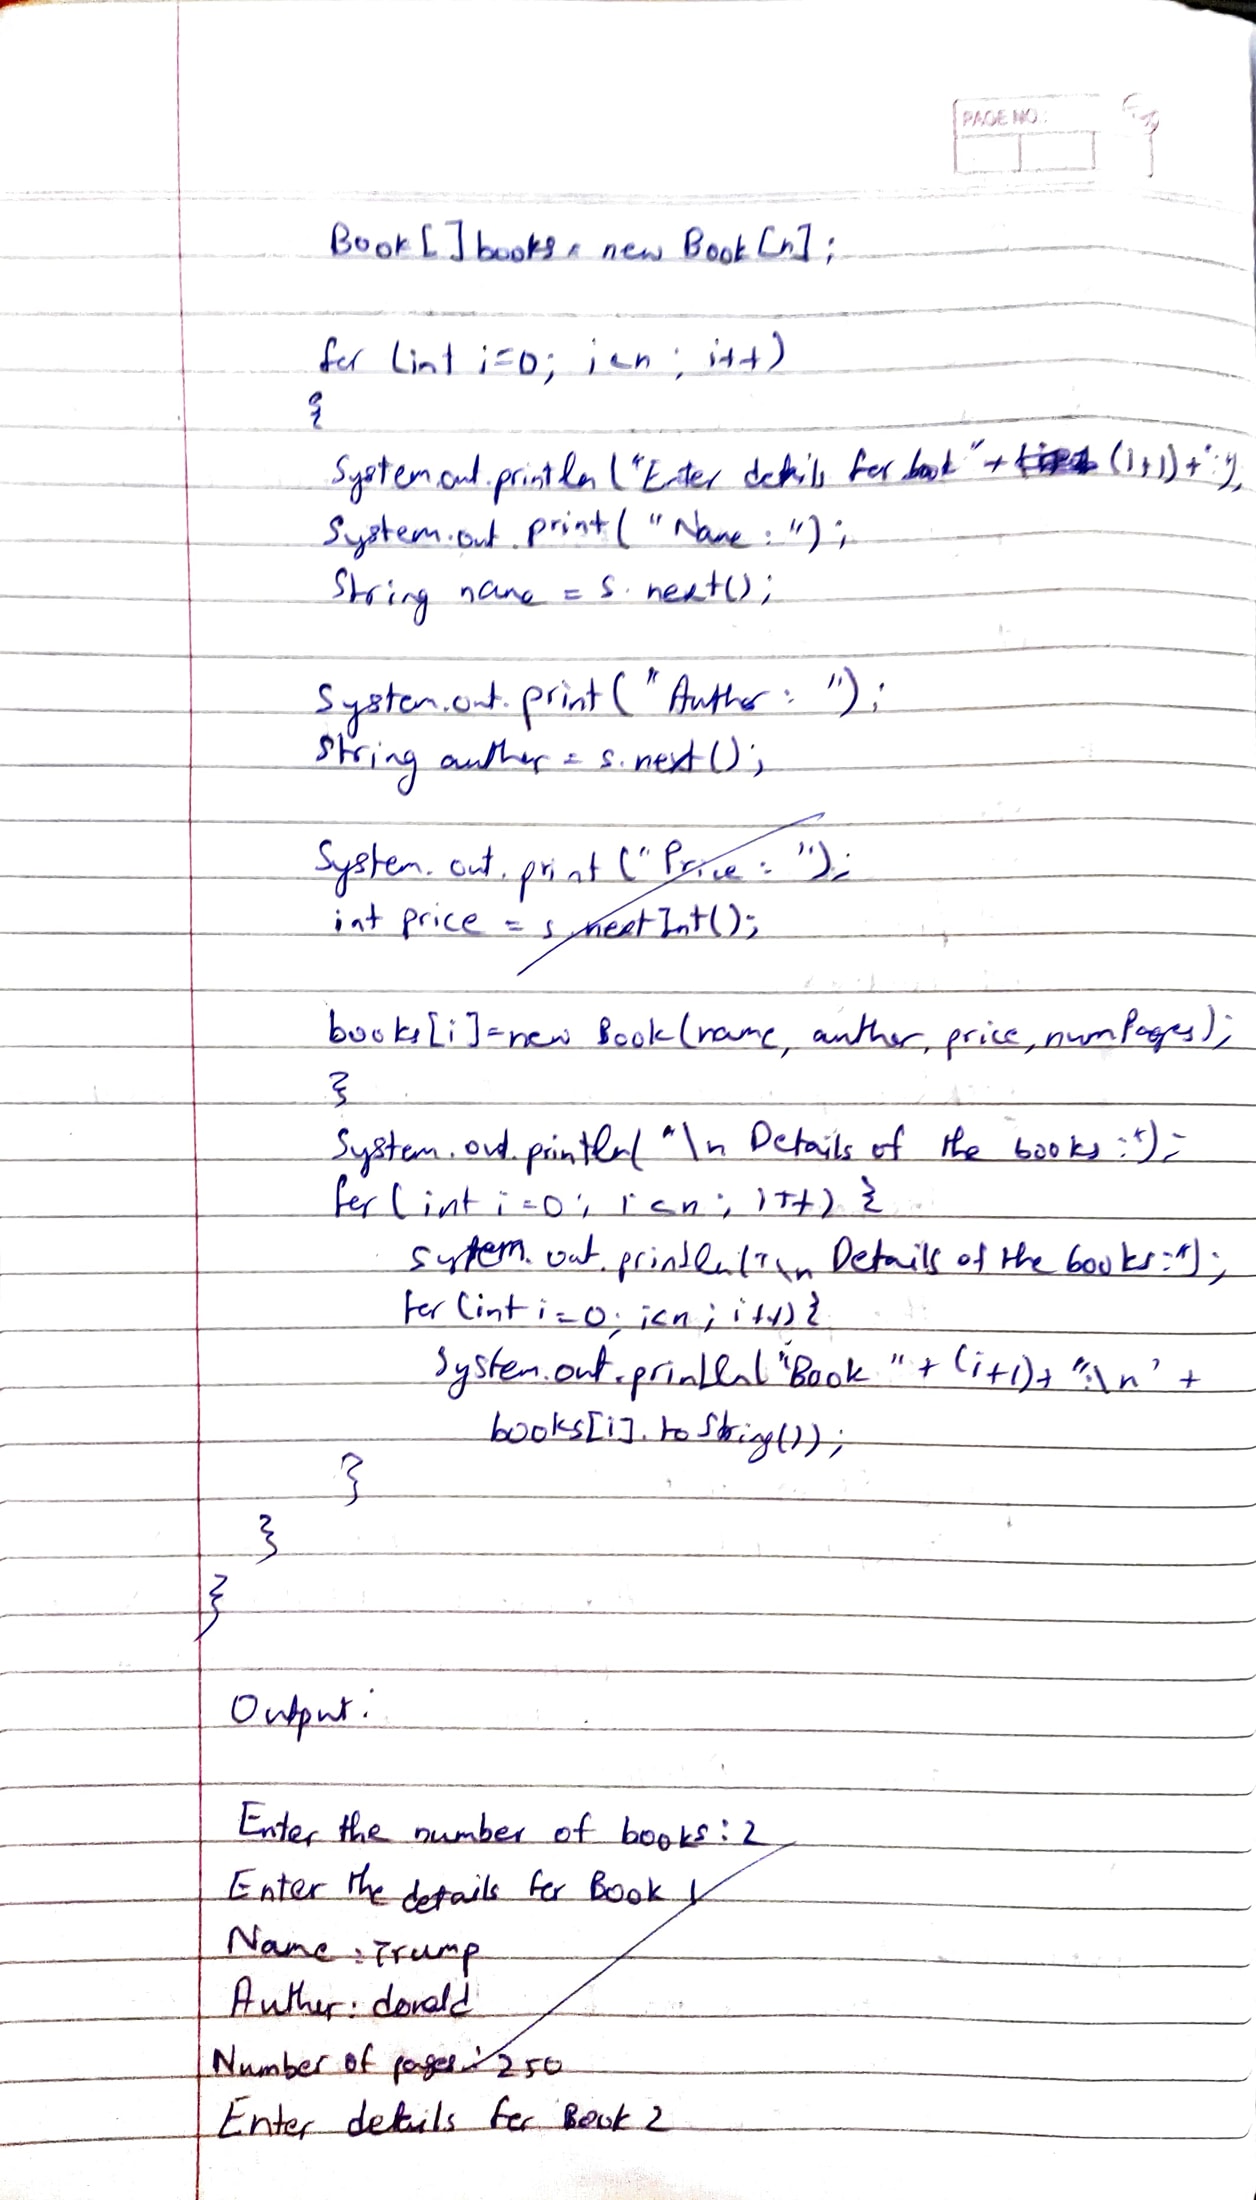 PAGE NO:
Book[] books = new Book[n];
for (int i=0; i<n; i++)
{
System.out.println("Enter details for book "+ (i+1)+":");
System.out.print("Name: ");
String name = s.next();
System.out.print("Auther: ");
String auther = s.next();
System.out.print("Price: ");
int price = s.nextInt();
books[i]=new Book(name, auther, price, numPages);
}
System.out.println("\n Details of the books:");
for (int i=0; i<n; i++) {
System.out.println("\n Details of the books:");
for (int i=0; i<n; i++) {
System.out.println("Book "+(i+1)+":\n" +
books[i].toString());
}
}
}
Output:
Enter the number of books: 2
Enter the details for Book 1
Name: Trump
Auther: donald
Number of pages: 250
Enter details for Book 2